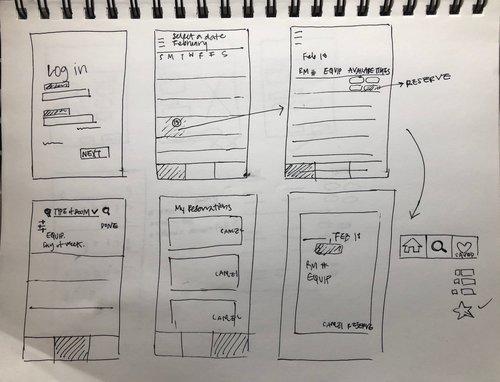 Log in
NEXT
Select a date
February
S M T W F F S
18
Feb 18
RM # EQUIP AVAILABLE TIMES
RESERVE
TYPE A ROOM
DONE
EQUIP.
Day of week.
My Reservations
CANCL
CANCL
CANCL
, FEB 18
RM #
EQUIP
CANCL RESERVE
SAVED